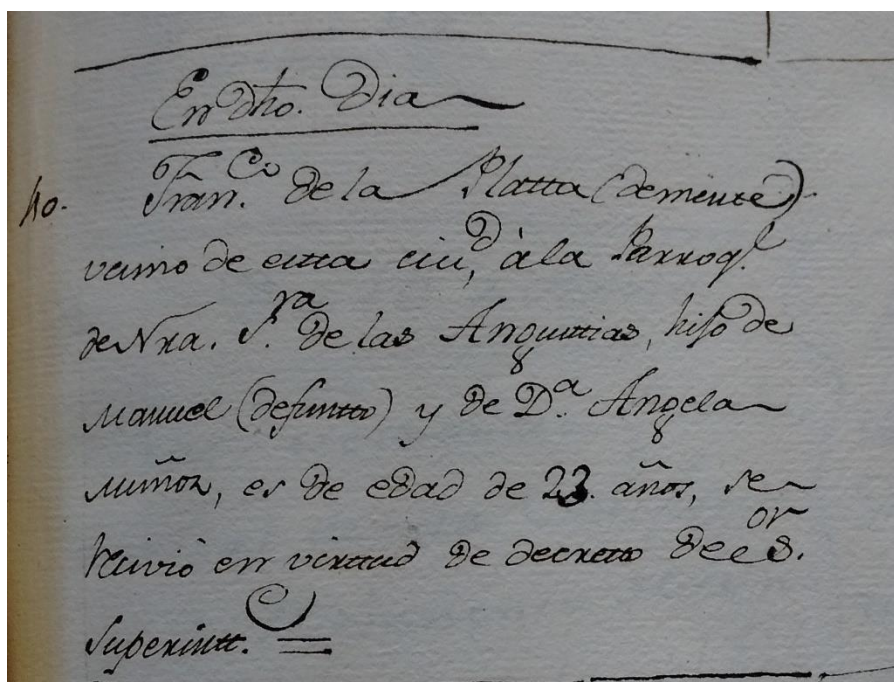 En dho. Dia
ho. Fran.co de la Platta (demente)
vecino de esta ciud, à la Parroq.l
de Nra. S.ra de las Angustias, hijo de
Manuel (defuntto) y de D.a Angela
Muñoz, es de edad de 23. años, se
recivió en virttud de decretto de el S.or
Superintt.e =